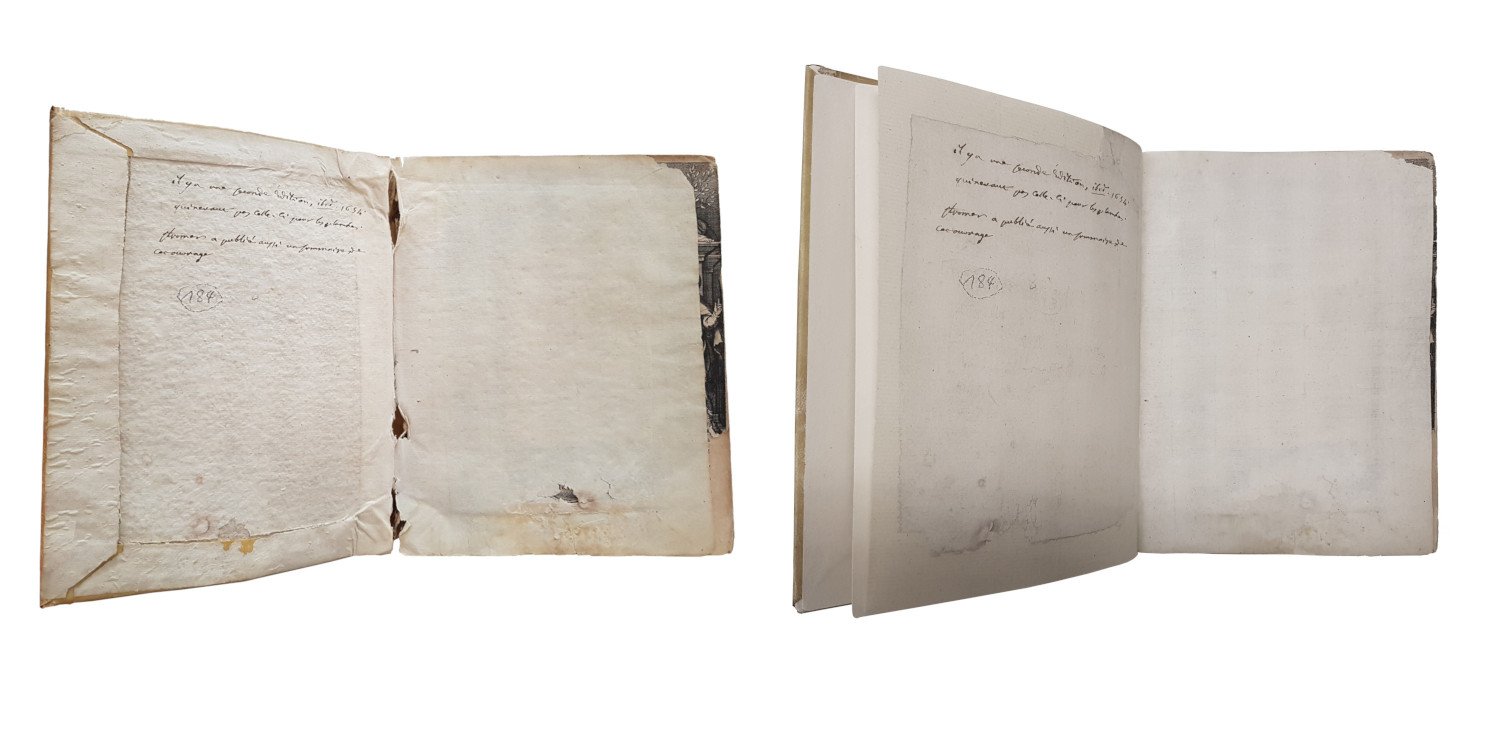 il y a une seconde Edition, ibid. 1654.
qui ne vaut pas celle-ci pour les planches.
a publié aussi un sommaire de
cet ouvrage
184
il y a une seconde Edition, ibid. 1654.
qui ne vaut pas celle-ci pour les planches.
a publié aussi un sommaire de
cet ouvrage
184